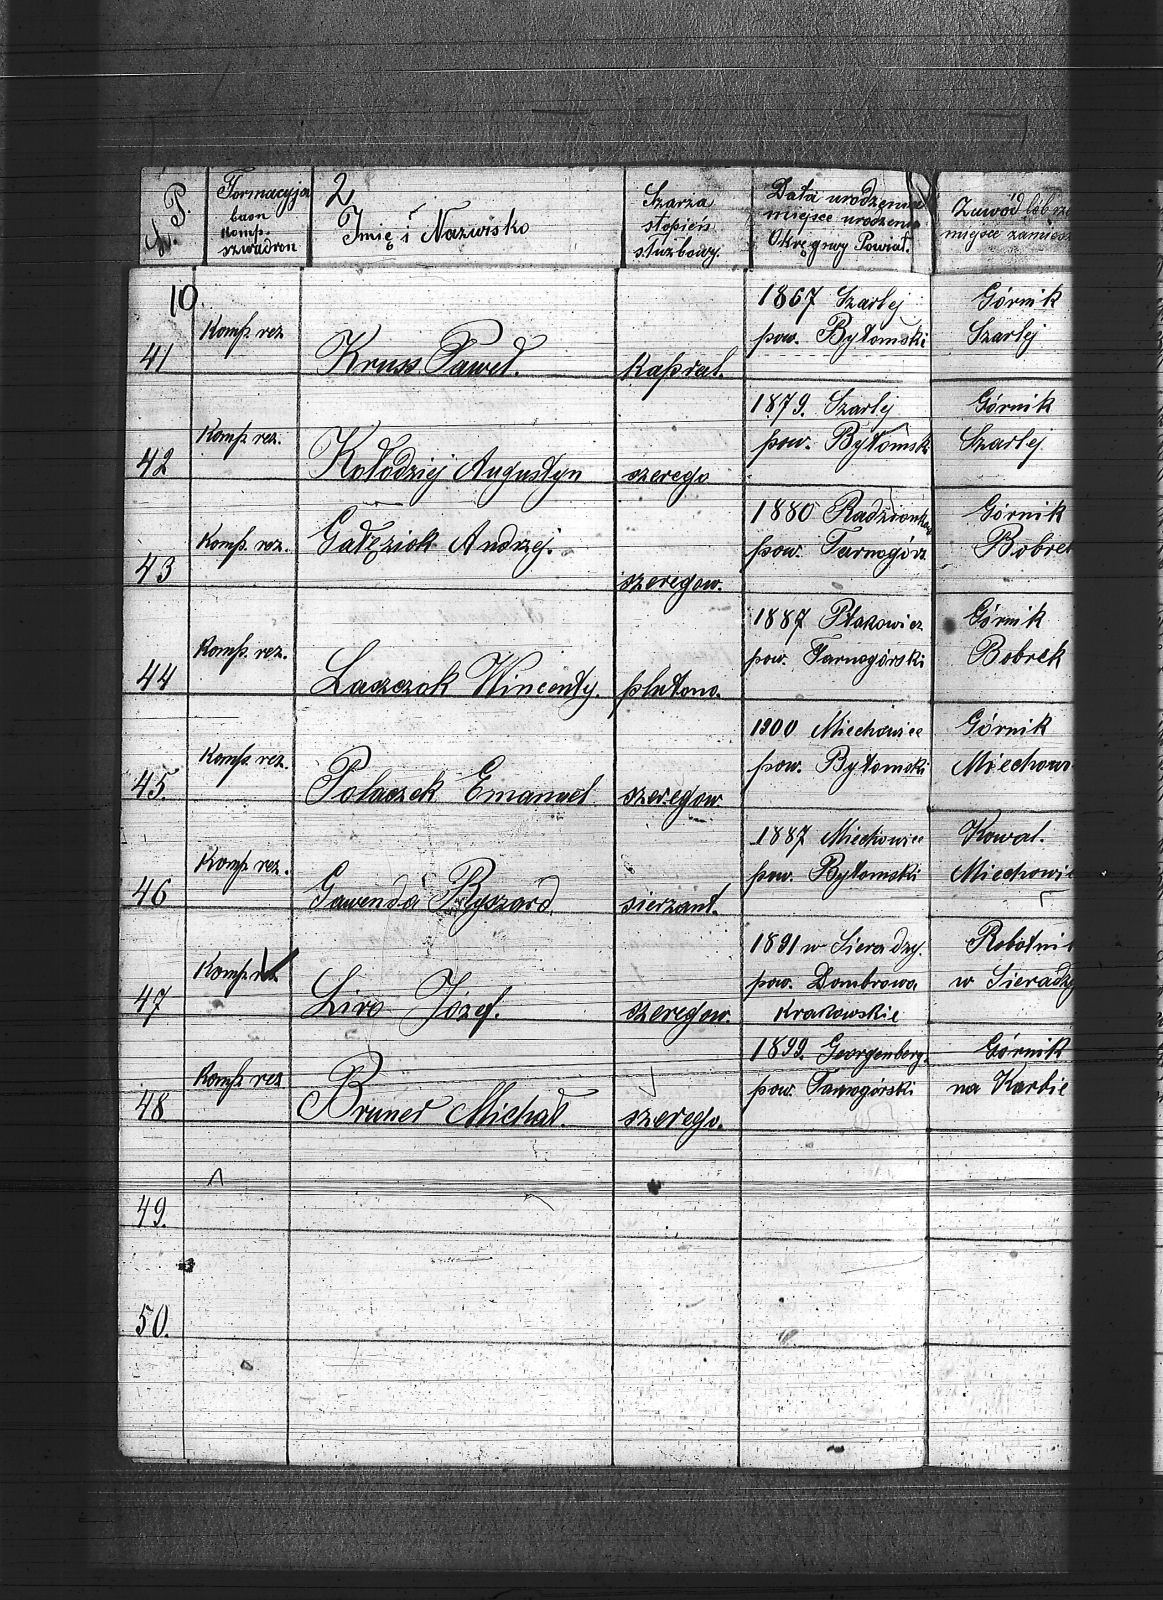 L. P.
Formacyja
baon
komp.
szwadron
2
Imię i Nazwisko
Szarża
stopień
służbowy.
Data urodzenia
miejsce urodzenia
Okręgowy Powiat.
Zawód
miejsce
10.
41 Komp. rez Kruss Paweł. kapral. 1867 Szarlej Górnik
pow. Bytomski Szarlej
42 Komp. rez. Kołodziej Augustyn szerego 1879. Szarlej Górnik
pow. Bytomsk Szarlej
43 Komp. rez. Gałęziok Andrzej. szeregow. 1880 Górnik
pow. Tarnogórz Bobrek
44 Komp. rez. Laszczok Wincenty. plutono. 1887 Ptakowicz Górnik
pow. Tarnogórski Bobrek
45. Komp. rez. Polaczek Emanuel szeregow 1900 Miechowice Górnik
pow. Bytomski Miechowi
46 Komp. rez. Gawenda Ryszard sierzant. 1887 Miechowice Kowal.
pow. Bytomski Miechowi
47 Komp. rez Liro Józef. szeregow. 1891 w Sieradzy. Robotni
pow. Dombrowa w Sieradzy
Krakowskie
48 Komp. rez Bruner Michał. szerego. 1899. Georgenberg. Górnik
pow. Tarnogórski na Karbie
49.
50.